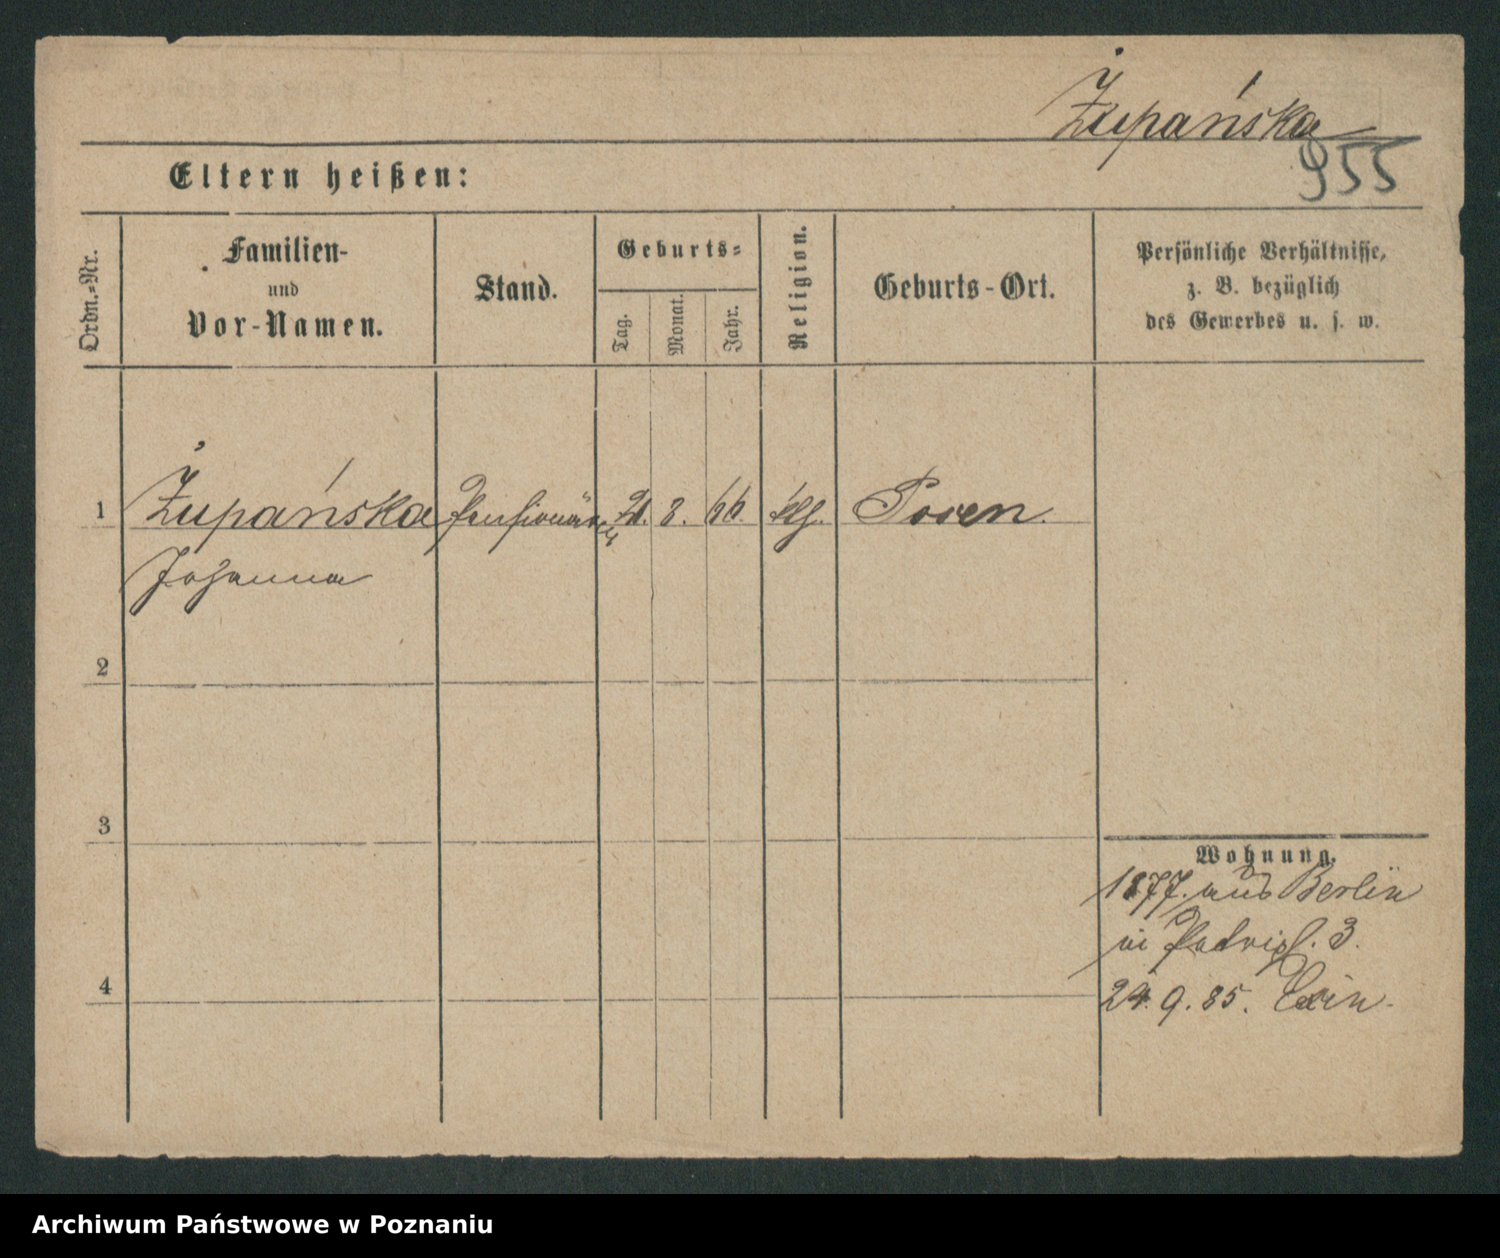 Żupańska
955
Eltern heißen:
Ordn.=Nr.
Familien-
und
Vor-Namen.
Stand.
Geburts=
Tag.
Monat.
Jahr.
Religion.
Geburts-Ort.
Persönliche Verhältnisse,
z. B. bezüglich
des Gewerbes u. s. w.
1 Żupańska Pensionärin 8. 66. Posen.
Johanna
2
3
4
Wohnung.
1877. aus Berlin
in 3.
24. 9. 85. Exin.
Archiwum Państwowe w Poznaniu